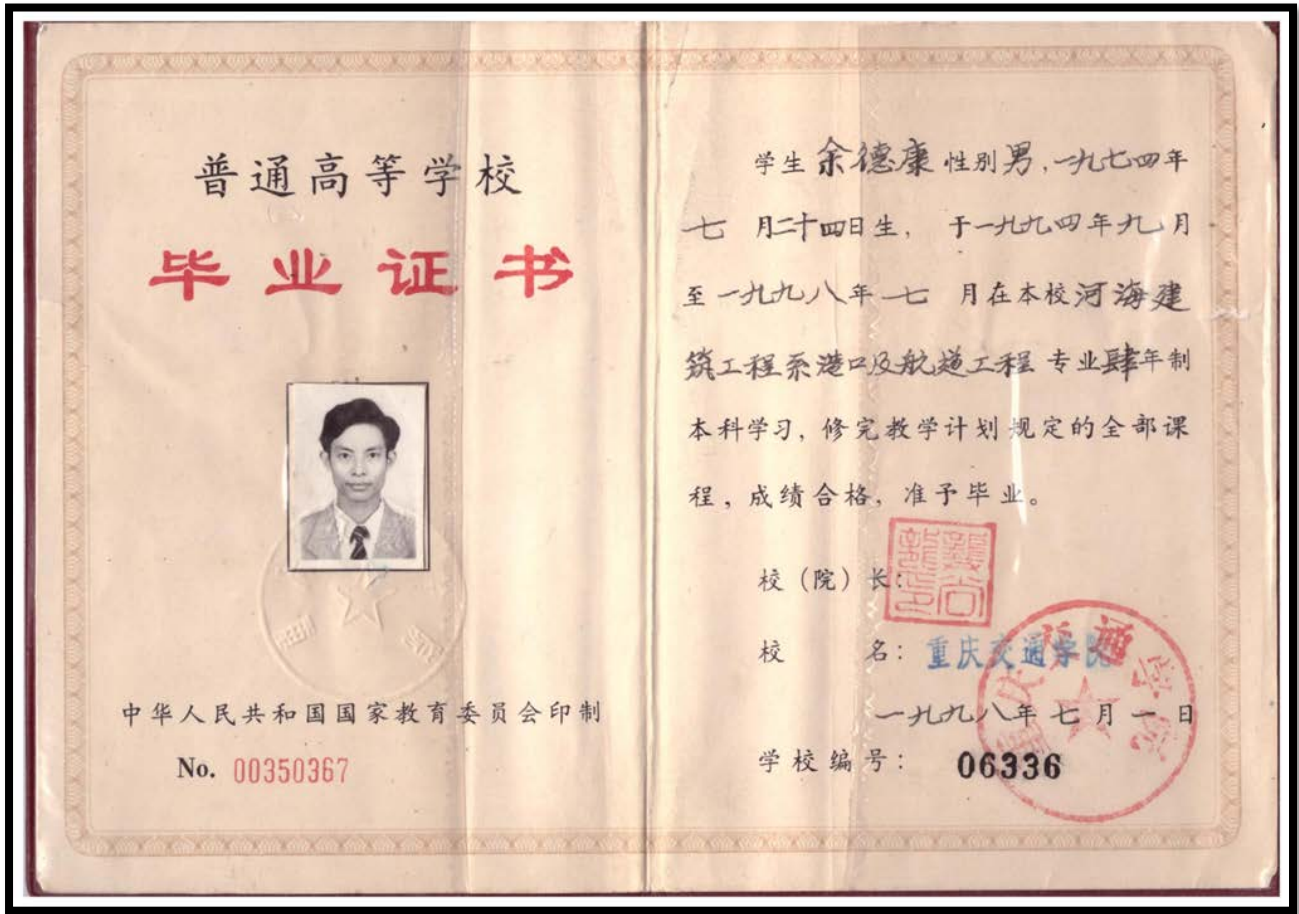 普通高等学校
毕业证书
中华人民共和国国家教育委员会印制
No. 00350367
学生余德康性别男,一九七四年
七 月二十四日生, 于一九九四年九月
至一九九八年七 月在本校河海建
筑工程系港口及航道工程 专业肆年制
本科学习,修完教学计划规定的全部课
程,成绩合格,准予毕业。
校(院)长:
校 名:重庆交通学院
一九九八年七月一日
学校编号: 06336
重庆交通学院